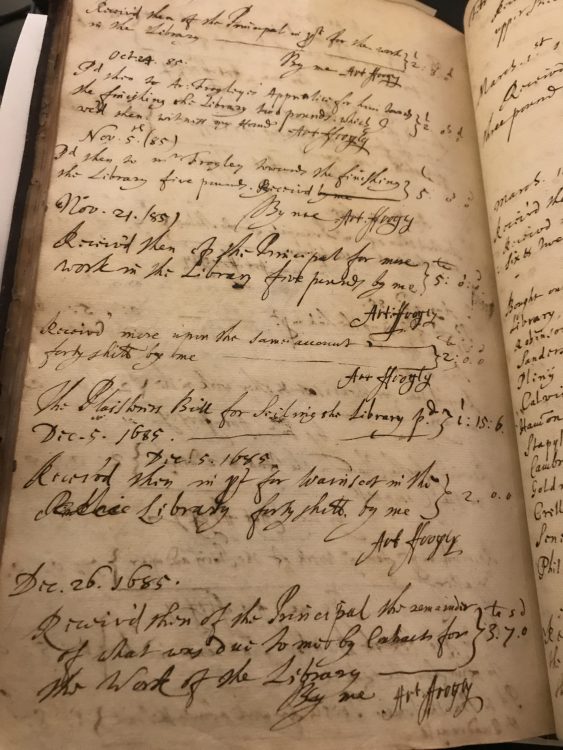 Received then of the Principal in pt for the work
in the Library 2: 8: d
By me Art ffrogly
Octo 24. 85.
Pd then to Mr Frogley's Apprentice for him towards
the finishing the Library two pounds which I
recd then witness my Hand Art ffrogly
Nov. 5. (85)
Pd then to mr Frogley towards the finishing
the Library five pounds. Received by me 5
By me Art ffrogly
Nov. 21. (85)
Received then of the Principal for more
work in the Library five pounds by me 5:
Art ffrogly
Received more upon the same account
forty shill by me 2: 0: 0
Art ffrogly
The Plaisterers Bill for Seiling the Library pd 1: 15: 6
Dec. 5. 1685.
Dec. 5. 1685
Received then in pt for wainscot in the
Library forty shill. by me 2. 0. 0
Art ffrogly
Dec. 26. 1685.
Received then of the Principal the remainder
of what was due to me by for 3. 7. 0
the Work of the Library
By me Art ffrogly
March. 1st
Received
three pound
March.
Received the
Received
Bought
Library
Robinson
Sanders
Pliny
Calvin
Hamon
Stapyl
Cambr
Gold
Sene
Phil